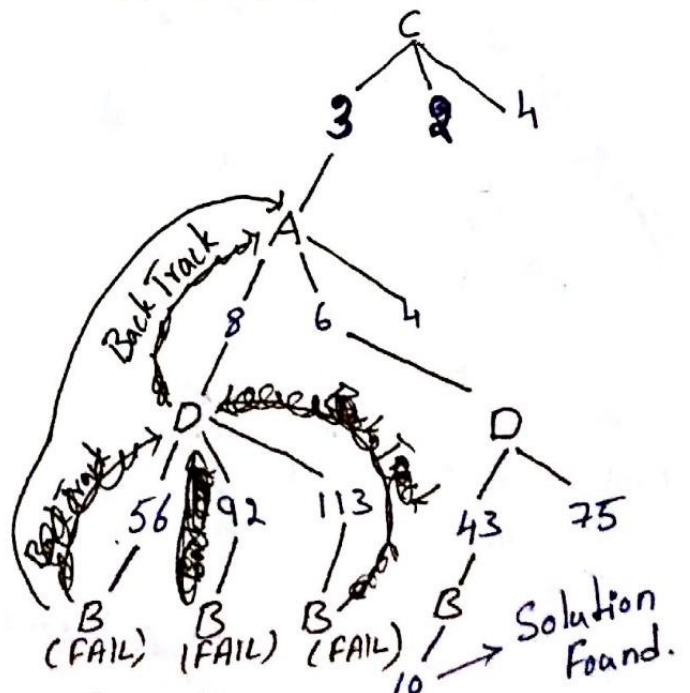 C
3 2 4
A
Back Track
8 6 4
D D
Back Track
56 92 113 43 75
B B B B
(FAIL) (FAIL) (FAIL)
10 Solution
Found.